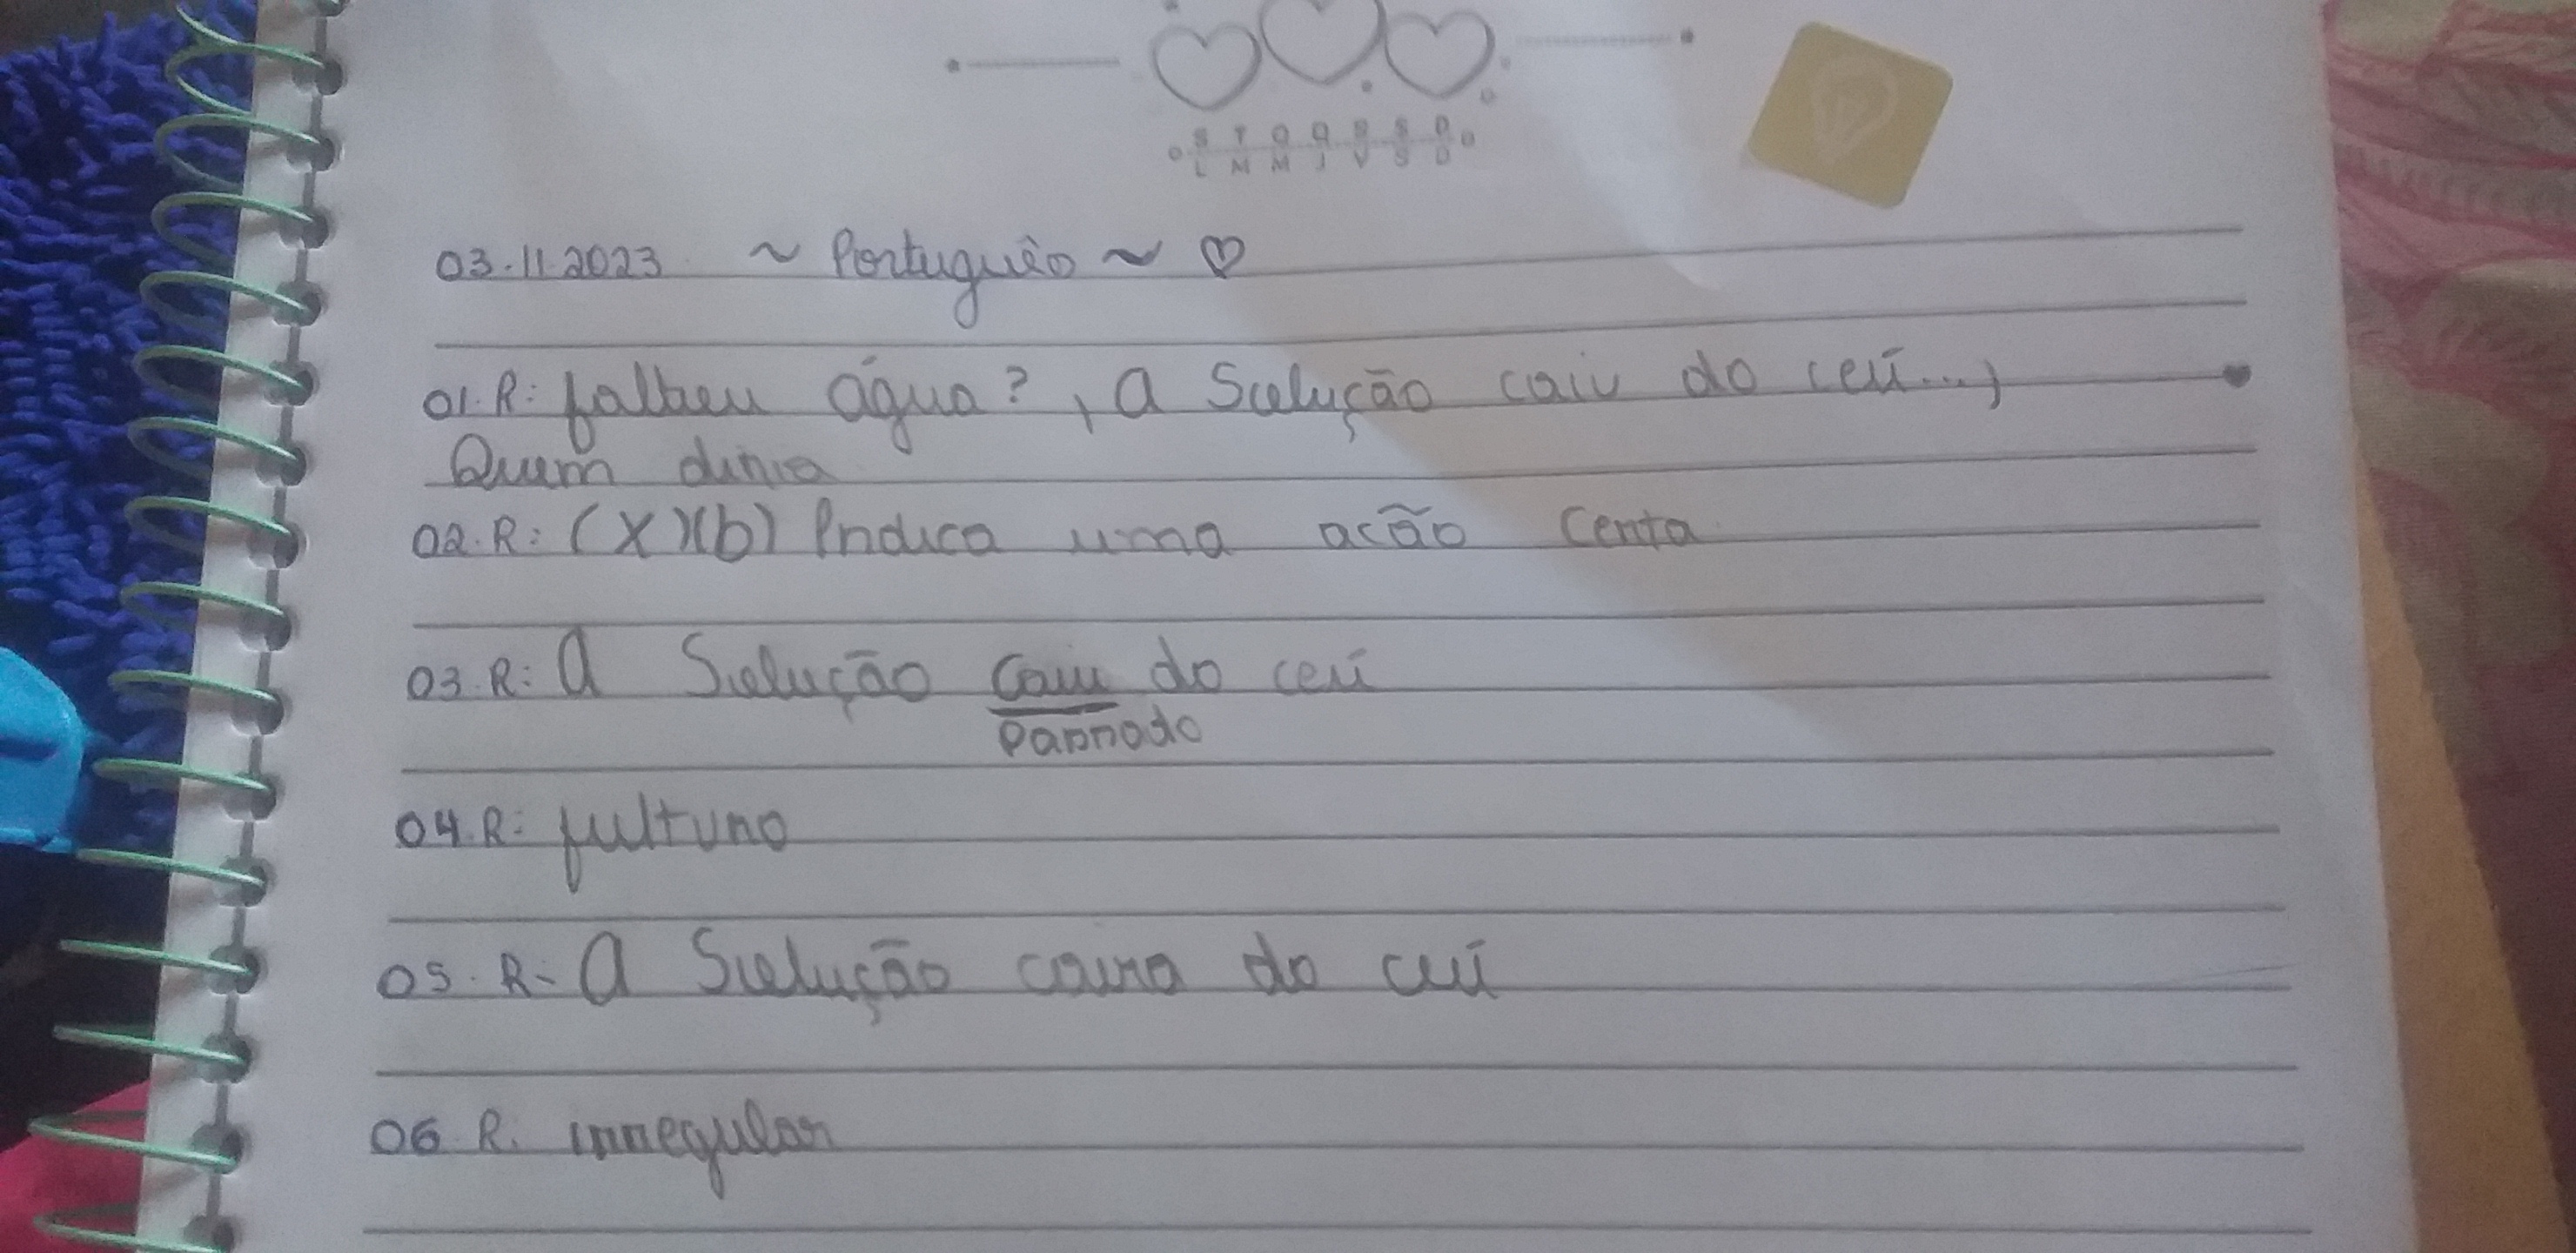 S T Q Q S S D
L M M J V S D
03.11.2023 ~ Português ~ ♡
01. R: faltou água? , A Solução caiu do ceú...)
Quem diria
02. R: (X)(b) Indica uma ação certa
03. R: A Solução Caiu do ceú
Passado
04. R: futuro
05. R- A Solução caira do ceú
06. R: irregular